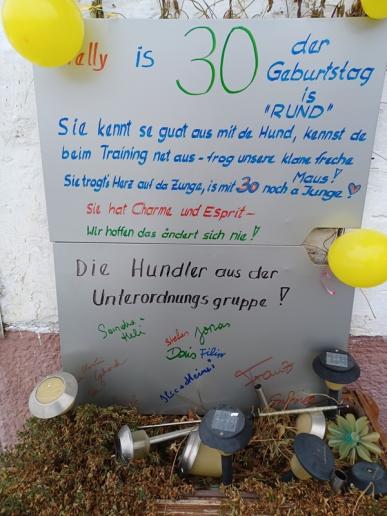 is 30 der
Geburtstag
is
"RUND"
Sie kennt se guat aus mit de Hund, kennst de
beim Training net aus - frog unsere klane freche
Maus!
Sie trogt's Herz auf da Zunge, is mit 30 noch a Junge!
Sie hat Charme und Esprit -
Wir hoffen das ändert sich nie!
Die Hundler aus der
Unterordnungsgruppe!
Sandra +
Heli
Jonas
Doris Filip
Nico + Heinz
Trautz